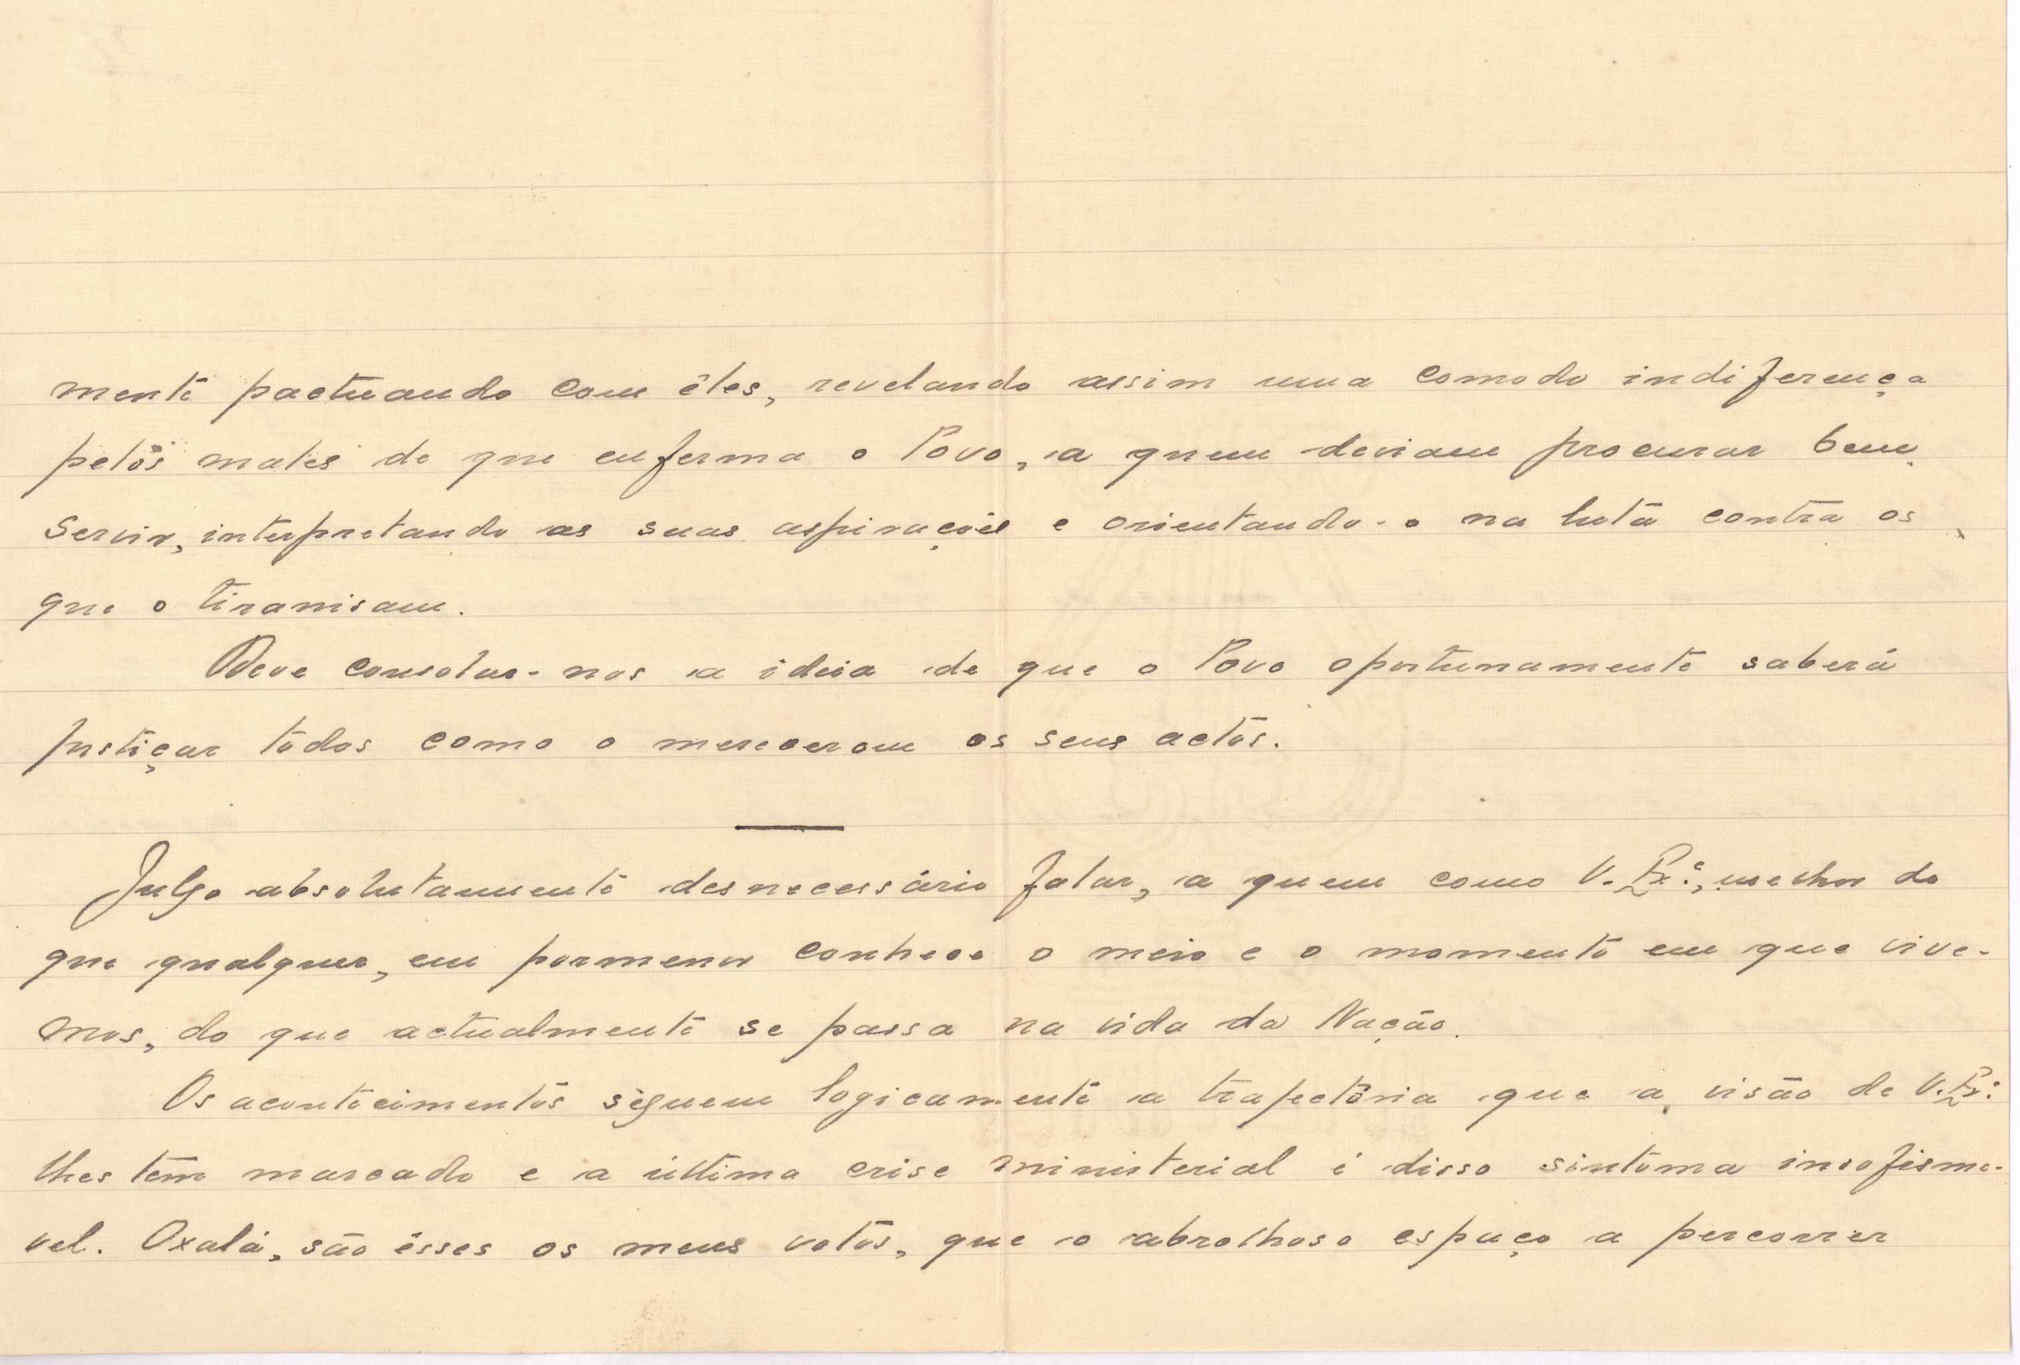 mente pactuando com êles, revelando assim uma comoda indiferença
pelos males de que enferma o Povo, a quem deviam procurar bem
servir, interpretando as suas aspirações e orientando-o na luta contra os
que o tiranisam.
Deve consolar-nos a ideia de que o Povo oportunamente saberá
justiçar todos como o mereceram os seus actos.
Julgo absolutamente desnecessário falar, a quem como V. Ex.ª, melhor do
que qualquer, em pormenor conhece o meio e o momento em que vive-
mos, do que actualmente se passa na vida da Nação.
Os acontecimentos seguem logicamente a trajectória que a visão de V. Ex.ª
lhes têm marcado e a última crise ministerial é disso sintoma insofismá-
vel. Oxalá, são êsses os meus votos, que o abrolhoso espaço a percorrer